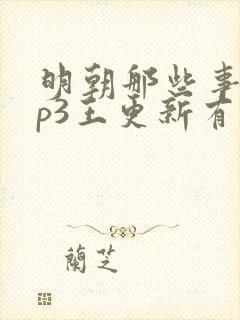 明朝那些事
p3王更新有
蘭芝